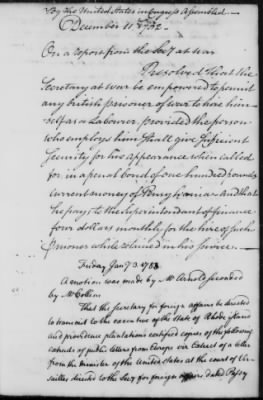 By the United States in Congress Assembled —
December 11th 1782 —
On a report from the Secy at war
Resolved that the
Secretary at war be empowered to permit
any british prisoner of war to hire him
self as a Labourer, provided the person
who employs him shall give sufficient
Security for his appearance when called
for in a penal bond of one hundred pounds
current money of Pennsylvania and that
he pay to the superintendant of finance
four dollars monthly for the hire of such
prisoner while retained in his service. —
Friday Jany 3. 1783
A motion was made by Mr Arnold seconded
by Mr Collins
That the Secretary for foreign affairs be directed
to transmit to the executive of the State of Rhode Island
and providence plantations certified copies of the following
extracts of public letters from Europe viz Extract of a letter
from the Minister of the United States at the court of Ver
sailles directed to the Secy for foreign affairs dated Passy